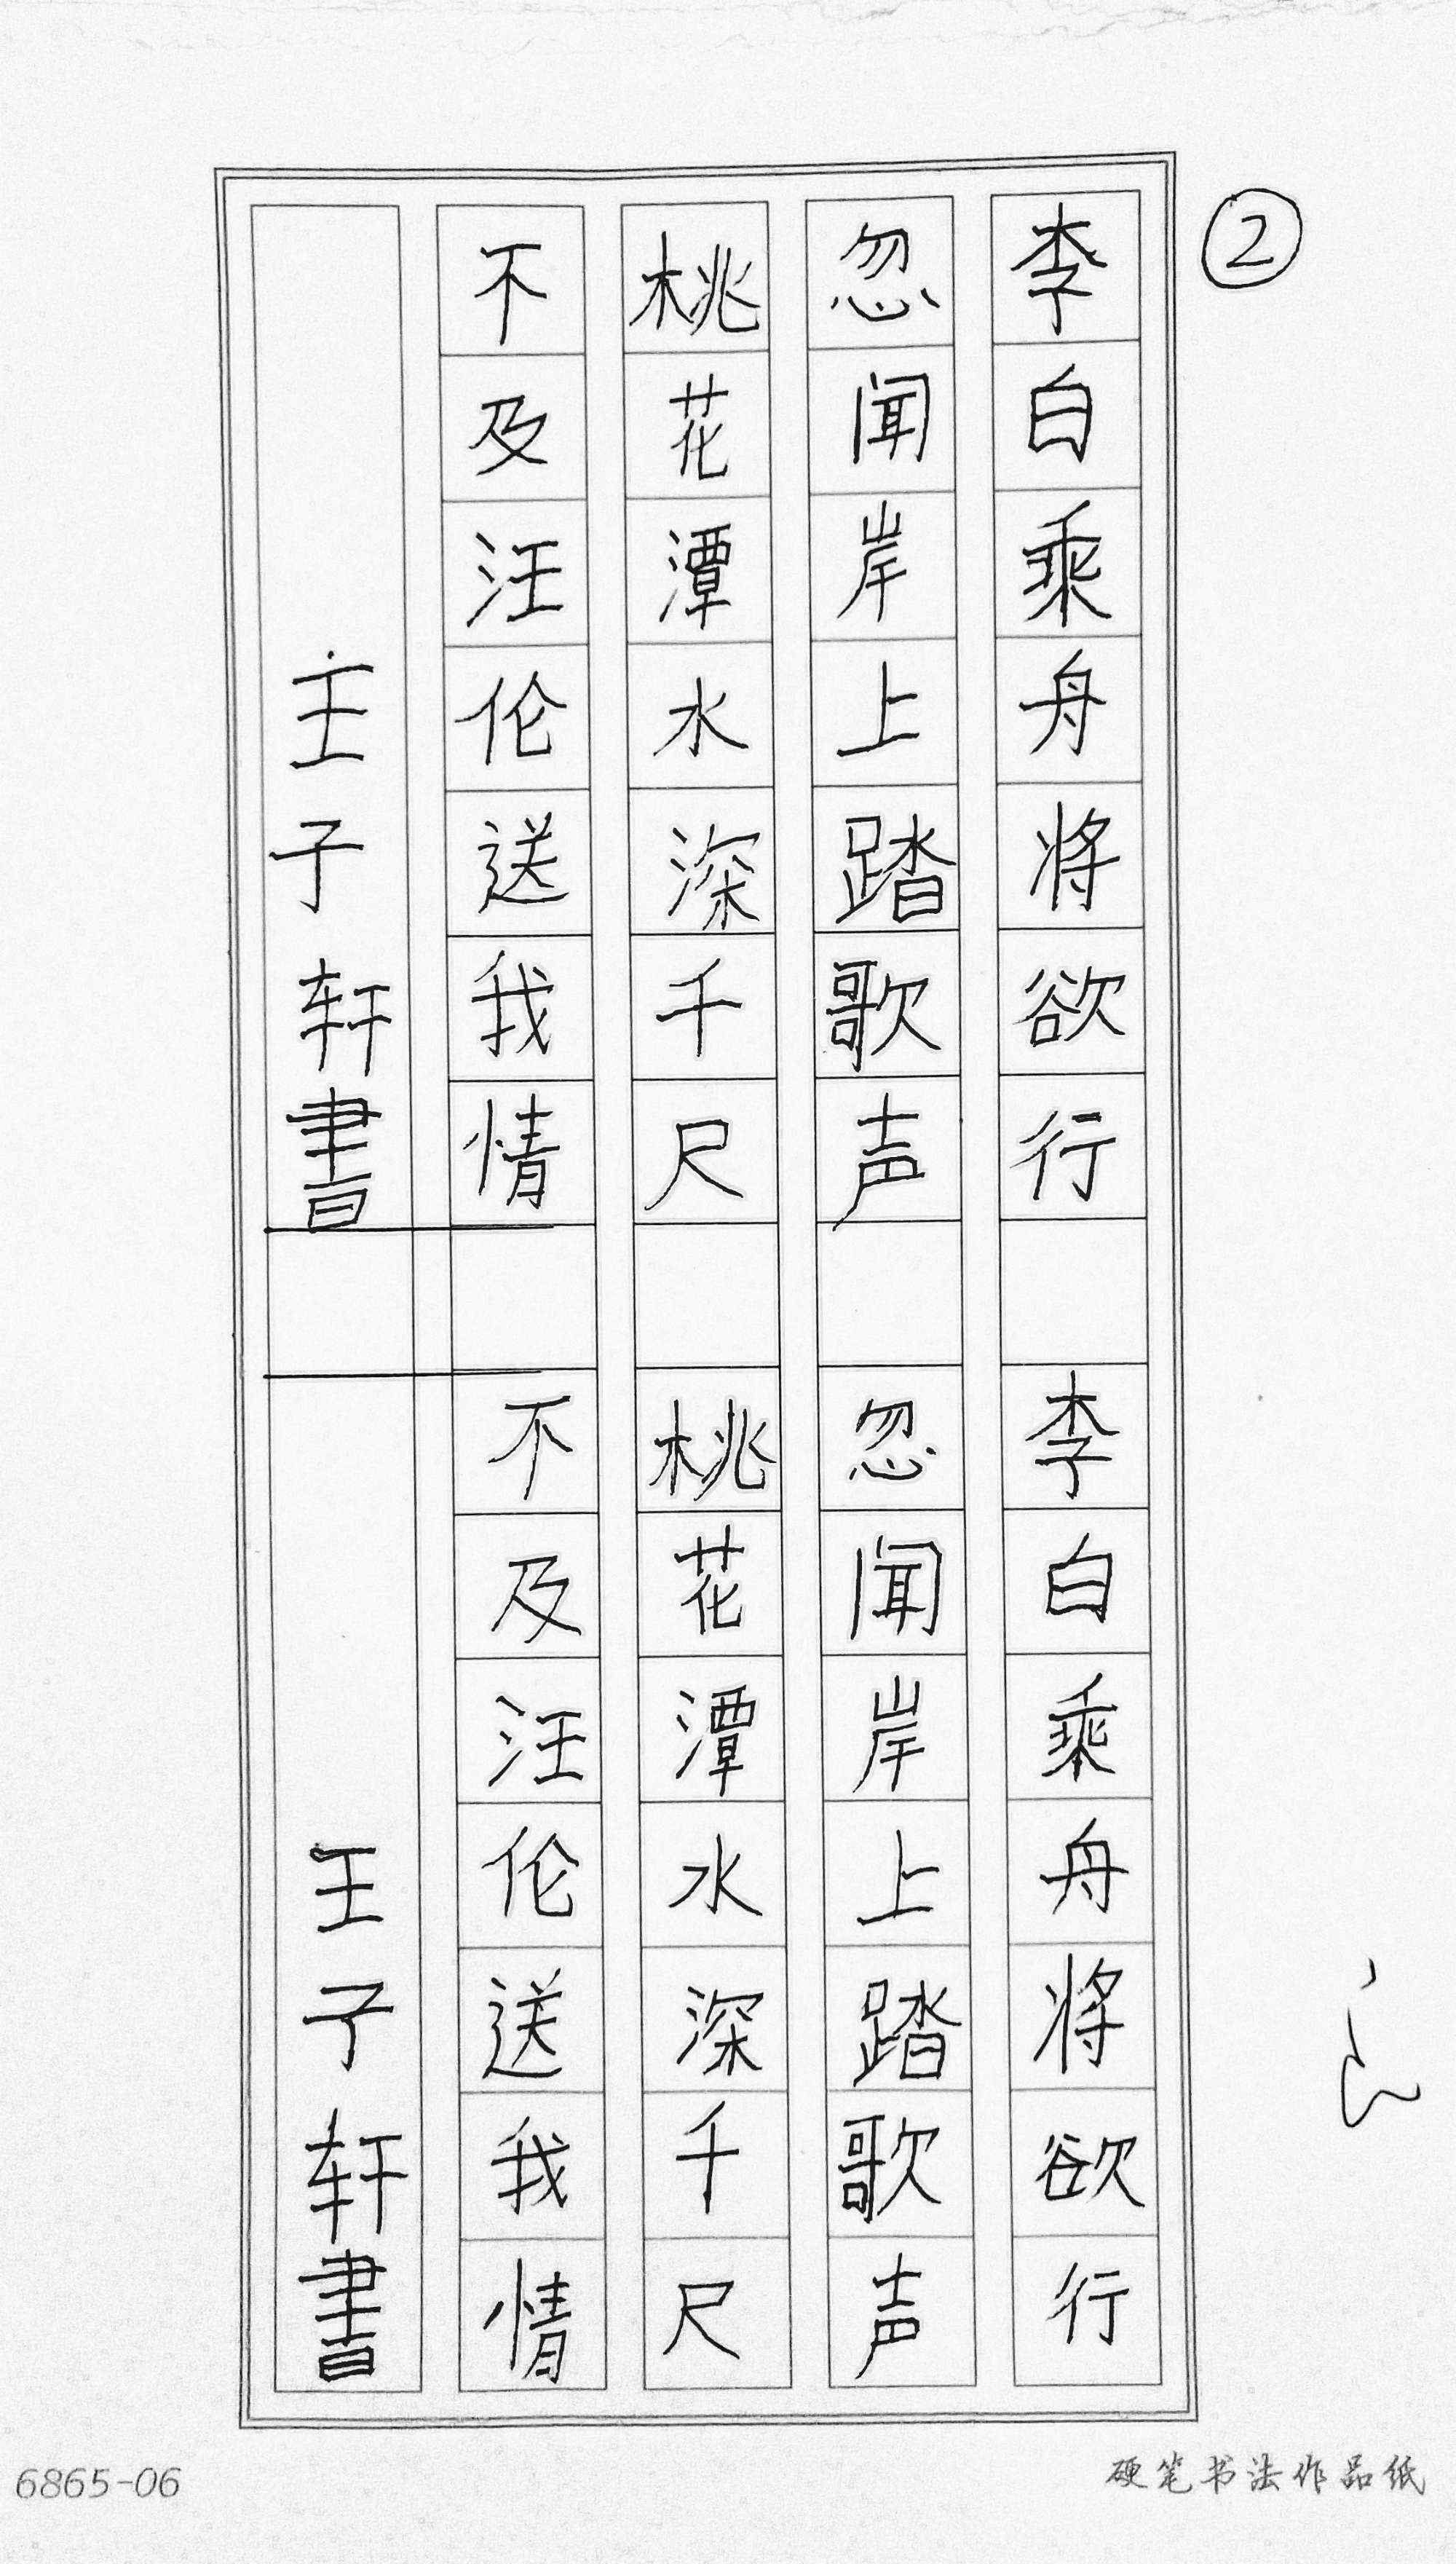 ②
李白乘舟将欲行
忽闻岸上踏歌声
桃花潭水深千尺
不及汪伦送我情
王子轩書
李白乘舟将欲行
忽闻岸上踏歌声
桃花潭水深千尺
不及汪伦送我情
王子轩書
6865-06
硬笔书法作品纸